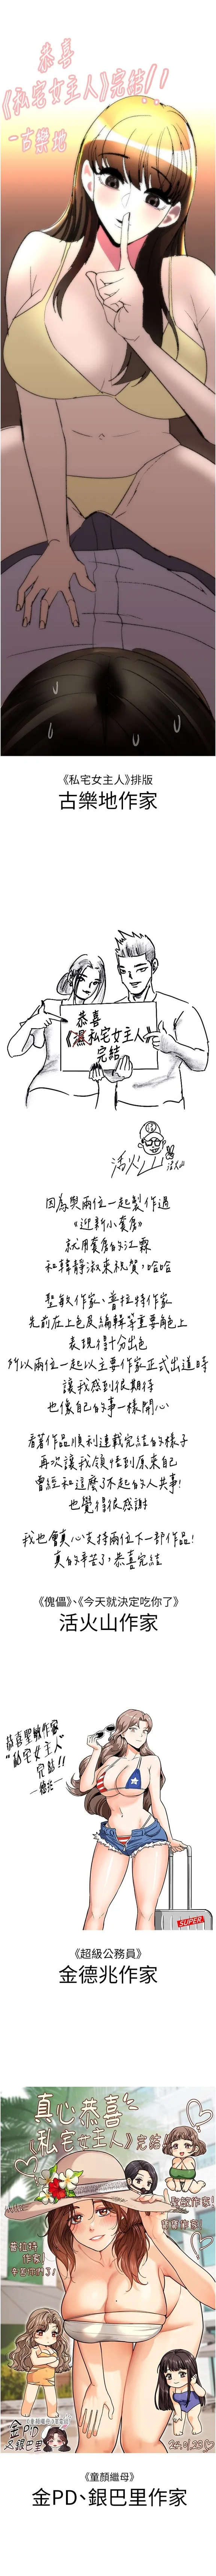 恭喜
《私宅女主人》完結!!
-古樂地
《私宅女主人》排版
古樂地作家
恭喜
私宅女主人》
完結
活火山
活火山
因為與兩位一起製作過
《迎新小套房》
就用套房的江霖
和韓靜淑來祝賀,哈哈
聖敏作家、普拉特作家
先前在上色及編輯等重要角色上
表現得十分出色
所以兩位一起以主要作家正式出道時
讓我感到很期待
也像自己的事一樣開心
看著作品順利連載完結的樣子
再次讓我領悟到原來自己
曾經和這麼了不起的人共事!
也覺得很感謝
我也會真心支持兩位下一部作品!
真的辛苦了,恭喜完結
《傀儡》、《今天就決定吃你了》
活火山作家
恭喜聖敏作家
"私宅女主人"
完結!!
SUPER
《超級公務員》
金德兆作家
真心恭喜
《私宅女主人》完結!
聖敏作家!
普拉特
作家!
辛苦你們了!
金PD
&銀巴里
24.01.23
《童顏繼母》
金PD、銀巴里作家